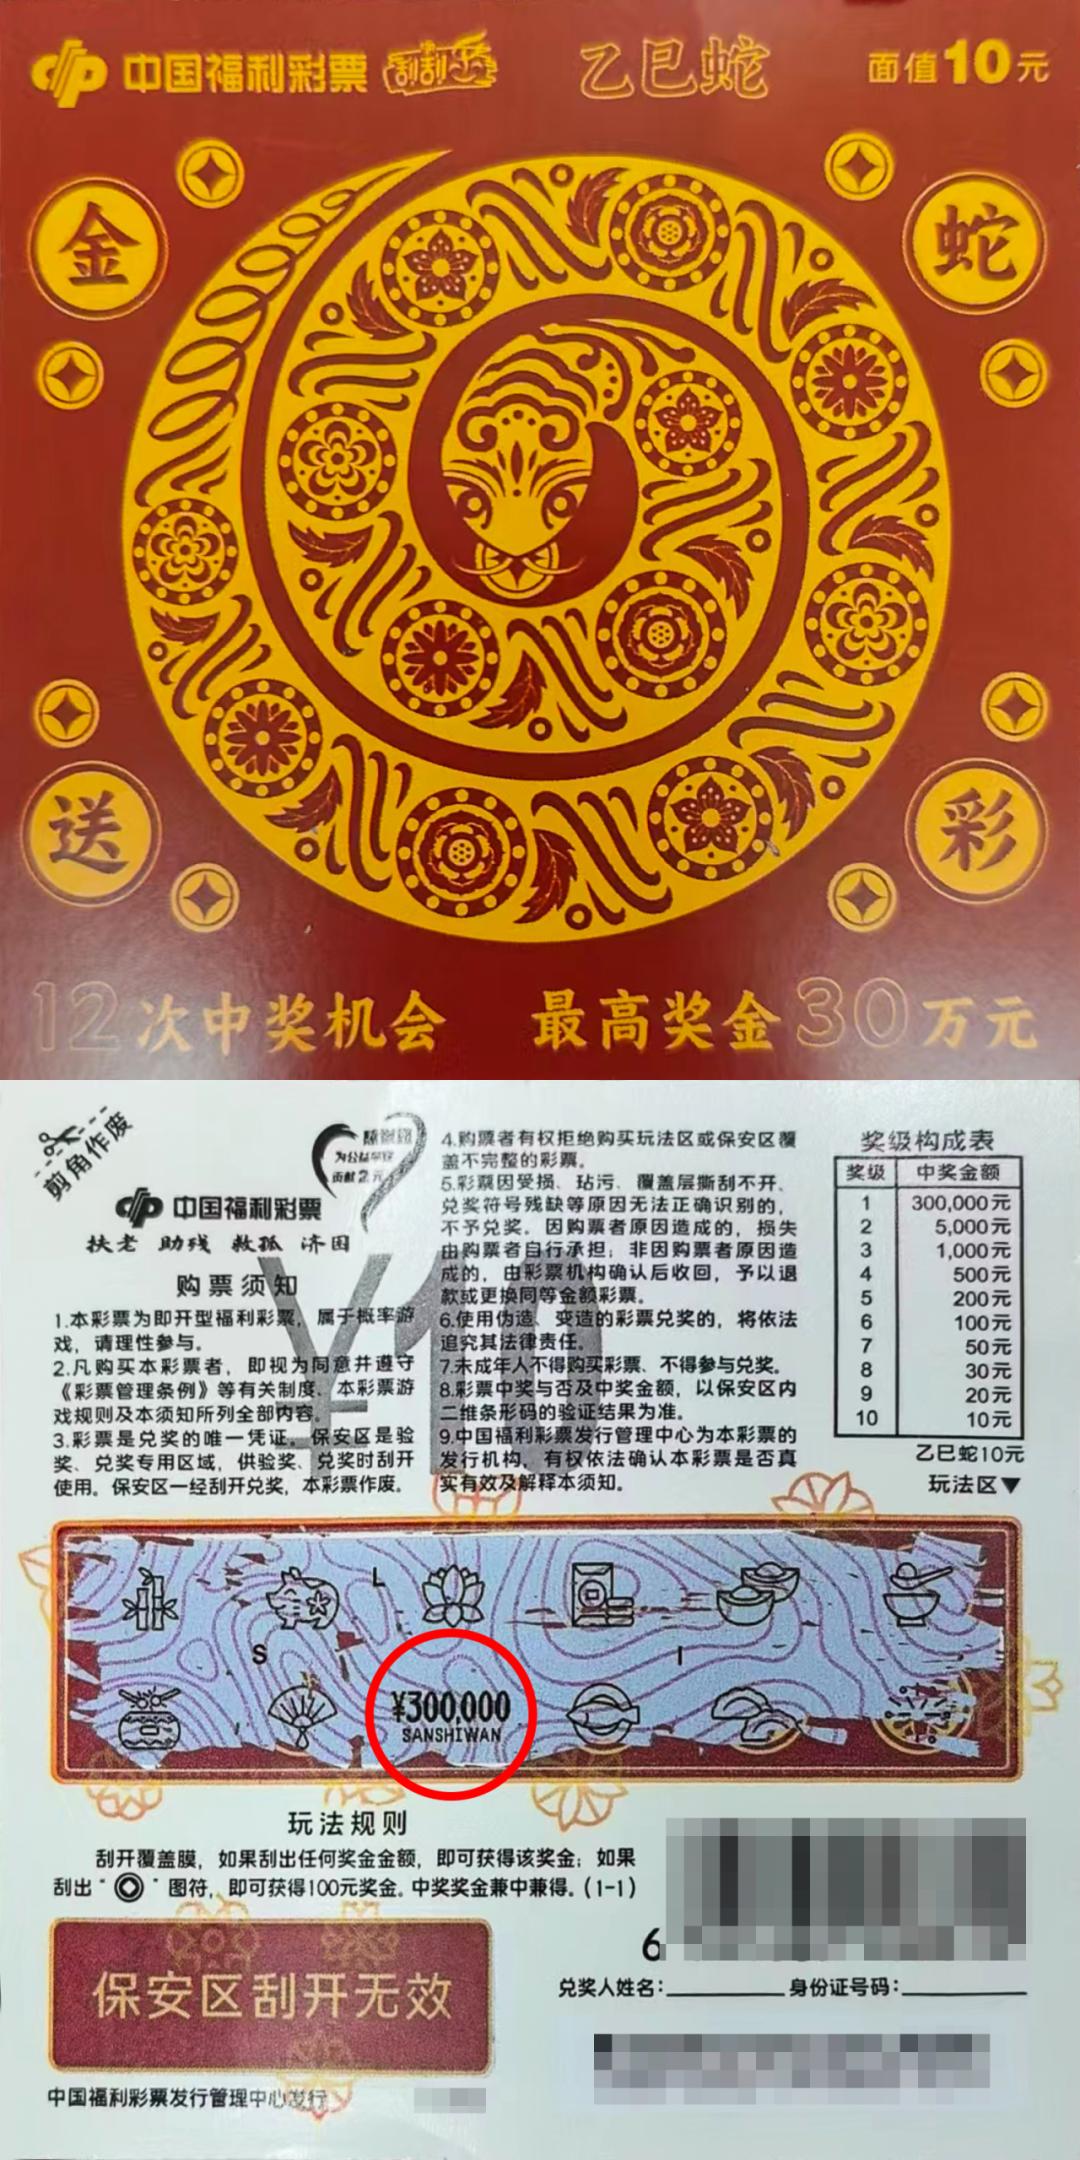 中国福利彩票 刮刮乐 乙巳蛇 面值10元
金 蛇
送 彩
12次中奖机会 最高奖金30万元
剪角作废
为公益事业
贡献2元
中国福利彩票
扶老 助残 救孤 济困
¥10
购票须知
1.本彩票为即开型福利彩票，属于概率游
戏，请理性参与。
2.凡购买本彩票者，即视为同意并遵守
《彩票管理条例》等有关制度、本彩票游
戏规则及本须知所列全部内容。
3.彩票是兑奖的唯一凭证。保安区是验
奖、兑奖专用区域，供验奖、兑奖时刮开
使用。保安区一经刮开兑奖，本彩票作废。
4.购票者有权拒绝购买玩法区或保安区覆
盖不完整的彩票。
5.彩票因受损、玷污、覆盖层撕刮不开、
兑奖符号残缺等原因无法正确识别的，
不予兑奖。因购票者原因造成的，损失
由购票者自行承担；非因购票者原因造
成的，由彩票机构确认后收回，予以退
款或更换同等金额彩票。
6.使用伪造、变造的彩票兑奖的，将依法
追究其法律责任。
7.未成年人不得购买彩票、不得参与兑奖。
8.彩票中奖与否及中奖金额，以保安区内
二维条形码的验证结果为准。
9.中国福利彩票发行管理中心为本彩票的
发行机构，有权依法确认本彩票是否真
实有效及解释本须知。
奖级构成表
奖级 中奖金额
1 300,000元
2 5,000元
3 1,000元
4 500元
5 200元
6 100元
7 50元
8 30元
9 20元
10 10元
乙巳蛇10元
玩法区▼
L
S I
¥300,000
SANSHIWAN
玩法规则
刮开覆盖膜，如果刮出任何奖金金额，即可获得该奖金；如果
刮出“ ”图符，即可获得100元奖金。中奖奖金兼中兼得。(1-1)
6
保安区刮开无效
兑奖人姓名: 身份证号码:
中国福利彩票发行管理中心发行